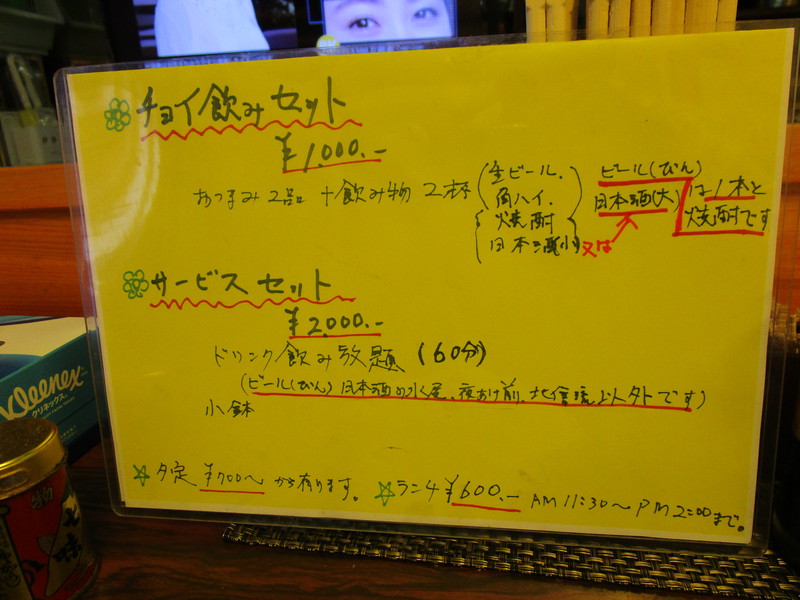 チョイ飲みセット
¥1,000.-
おつまみ2品 + 飲み物2杯
生ビール.
角ハイ.
焼酎
日本酒小
又は
ビール(びん)
日本酒(大)
は1本と
焼酎です
サービスセット
¥2,000.-
ドリンク飲み放題 (60分)
(ビール(びん) 日本酒の水尾、夜あけ前、北信流以外です)
小鉢
夕定 ¥700〜から有ります。
ランチ ¥600.- AM11:30〜PM2:00まで。
Kleenex
クリネックス
七味